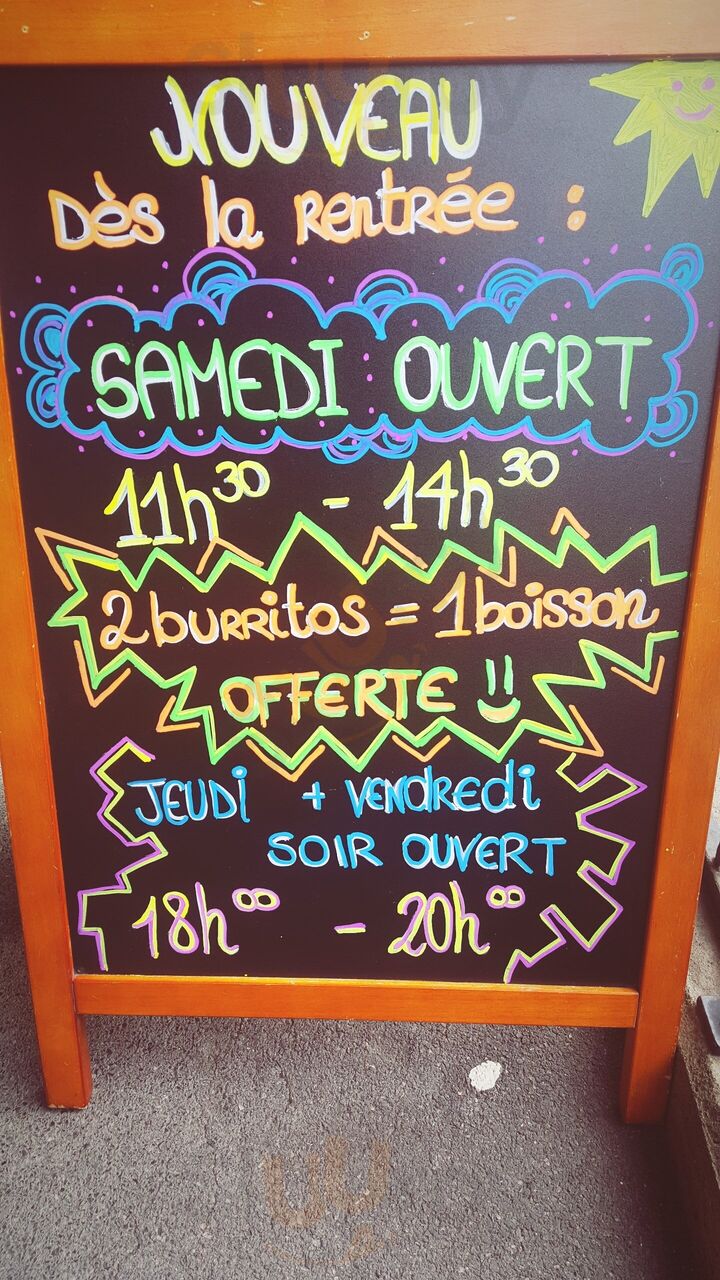 NOUVEAU
Dès la Rentrée :
SAMEDI OUVERT
11h30 - 14h30
2 burritos = 1 boisson
OFFERTE !!
JEUDi + VENDREDi
SOIR OUVERT
18h00 - 20h00